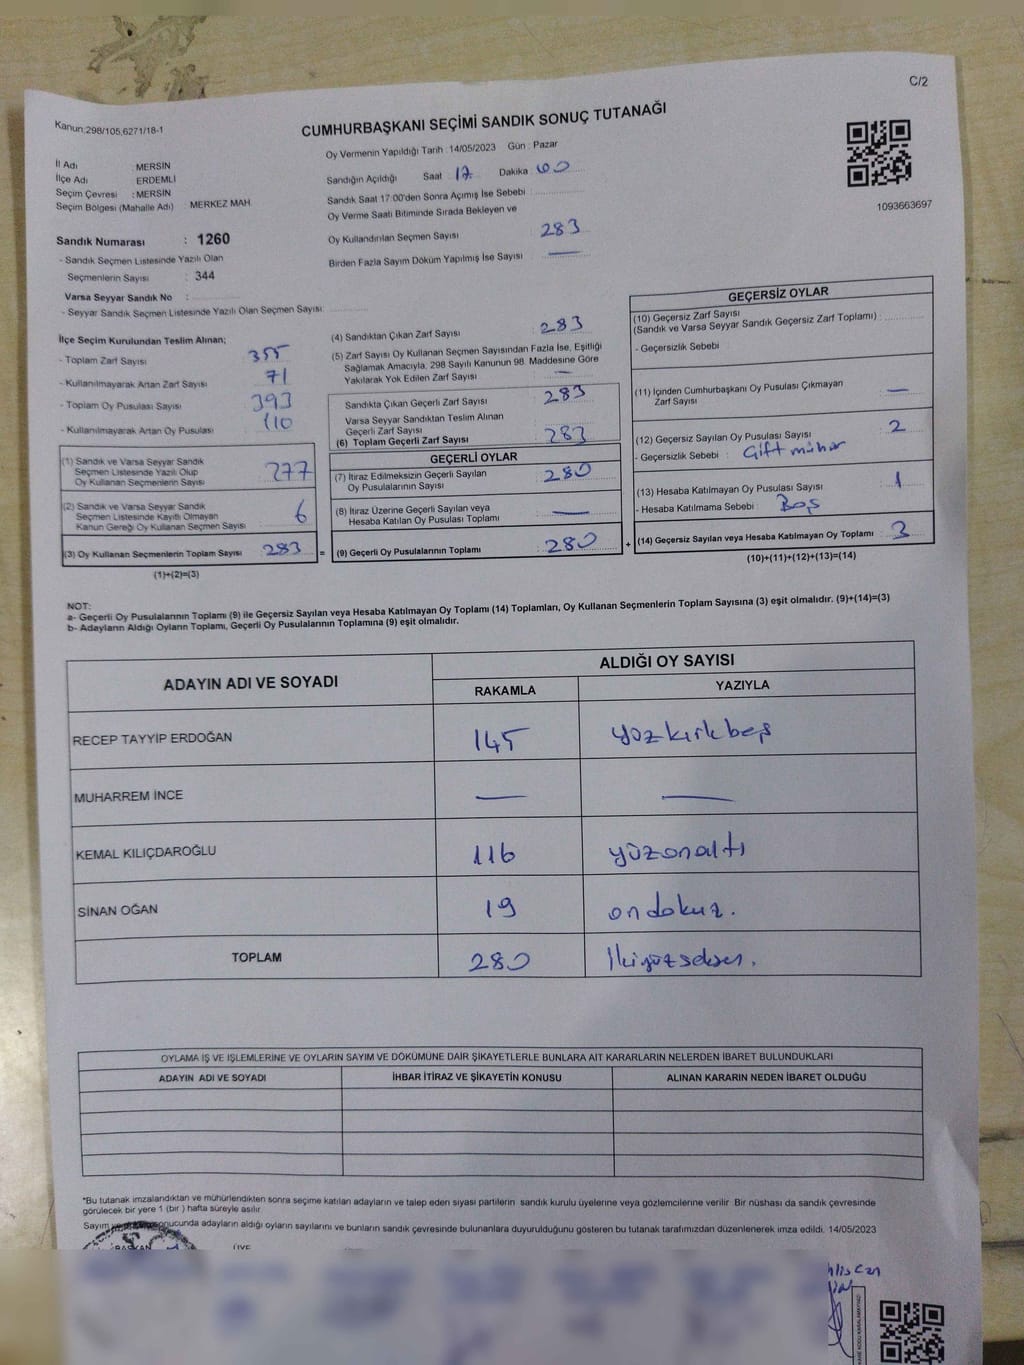 C/2
Kanun:298/105,6271/18-1
CUMHURBAŞKANI SEÇİMİ SANDIK SONUÇ TUTANAĞI
Oy Vermenin Yapıldığı Tarih : 14/05/2023 Gün : Pazar
İl Adı : MERSİN
İlçe Adı : ERDEMLİ
Seçim Çevresi : MERSİN
Seçim Bölgesi (Mahalle Adı) : MERKEZ MAH.
Sandığın Açıldığı Saat 17 Dakika 00
Sandık Saat 17:00'den Sonra Açımış İse Sebebi :
Oy Verme Saati Bitiminde Sırada Bekleyen ve
Oy Kullandırılan Seçmen Sayısı 283
Birden Fazla Sayım Döküm Yapılmış İse Sayısı —
1093663697
Sandık Numarası : 1260
- Sandık Seçmen Listesinde Yazılı Olan
Seçmenlerin Sayısı : 344
Varsa Seyyar Sandık No :
- Seyyar Sandık Seçmen Listesinde Yazılı Olan Seçmen Sayısı:
İlçe Seçim Kurulundan Teslim Alınan;
- Toplam Zarf Sayısı 355
- Kullanılmayarak Artan Zarf Sayısı 71
- Toplam Oy Pusulası Sayısı 393
- Kullanılmayarak Artan Oy Pusulası 110
(1) Sandık ve Varsa Seyyar Sandık
Seçmen Listesinde Yazılı Olup
Oy Kullanan Seçmenlerin Sayısı 277
(2) Sandık ve Varsa Seyyar Sandık
Seçmen Listesinde Kayıtlı Olmayan
Kanun Gereği Oy Kullanan Seçmen Sayısı 6
(3) Oy Kullanan Seçmenlerin Toplam Sayısı 283 =
(1)+(2)=(3)
(4) Sandıktan Çıkan Zarf Sayısı 283
(5) Zarf Sayısı Oy Kullanan Seçmen Sayısından Fazla İse, Eşitliği
Sağlamak Amacıyla, 298 Sayılı Kanunun 98. Maddesine Göre
Yakılarak Yok Edilen Zarf Sayısı —
Sandıkta Çıkan Geçerli Zarf Sayısı 283
Varsa Seyyar Sandıktan Teslim Alınan
Geçerli Zarf Sayısı
(6) Toplam Geçerli Zarf Sayısı 283
GEÇERLİ OYLAR
(7) İtiraz Edilmeksizin Geçerli Sayılan
Oy Pusulalarının Sayısı 280
(8) İtiraz Üzerine Geçerli Sayılan veya
Hesaba Katılan Oy Pusulası Toplamı —
(9) Geçerli Oy Pusulalarının Toplamı 280 +
GEÇERSİZ OYLAR
(10) Geçersiz Zarf Sayısı
(Sandık ve Varsa Seyyar Sandık Geçersiz Zarf Toplamı) :
- Geçersizlik Sebebi :
(11) İçinden Cumhurbaşkanı Oy Pusulası Çıkmayan
Zarf Sayısı —
(12) Geçersiz Sayılan Oy Pusulası Sayısı 2
- Geçersizlik Sebebi : Çift mühür
(13) Hesaba Katılmayan Oy Pusulası Sayısı 1
- Hesaba Katılmama Sebebi : Boş
(14) Geçersiz Sayılan veya Hesaba Katılmayan Oy Toplamı : 3
(10)+(11)+(12)+(13)=(14)
NOT:
a- Geçerli Oy Pusulalarının Toplamı (9) ile Geçersiz Sayılan veya Hesaba Katılmayan Oy Toplamı (14) Toplamları, Oy Kullanan Seçmenlerin Toplam Sayısına (3) eşit olmalıdır. (9)+(14)=(3)
b- Adayların Aldığı Oyların Toplamı, Geçerli Oy Pusulalarının Toplamına (9) eşit olmalıdır.
ADAYIN ADI VE SOYADI ALDIĞI OY SAYISI
RAKAMLA YAZIYLA
RECEP TAYYİP ERDOĞAN 145 yüzkırkbeş
MUHARREM İNCE — —
KEMAL KILIÇDAROĞLU 116 yüzonaltı
SİNAN OĞAN 19 ondokuz.
TOPLAM 280 İkiyüzseksen.
OYLAMA İŞ VE İŞLEMLERİNE VE OYLARIN SAYIM VE DÖKÜMÜNE DAİR ŞİKAYETLERLE BUNLARA AİT KARARLARIN NELERDEN İBARET BULUNDUKLARI
ADAYIN ADI VE SOYADI İHBAR İTİRAZ VE ŞİKAYETİN KONUSU ALINAN KARARIN NEDEN İBARET OLDUĞU
*Bu tutanak imzalandıktan ve mühürlendikten sonra seçime katılan adayların ve talep eden siyasi partilerin sandık kurulu üyelerine veya gözlemcilerine verilir. Bir nüshası da sandık çevresinde
görülecek bir yere 1 (bir ) hafta süreyle asılır.
Sayım sonucunda adayların aldığı oyların sayılarını ve bunların sandık çevresinde bulunanlara duyurulduğunu gösteren bu tutanak tarafımızdan düzenlenerek imza edildi. 14/05/2023
BAŞKAN ÜYE